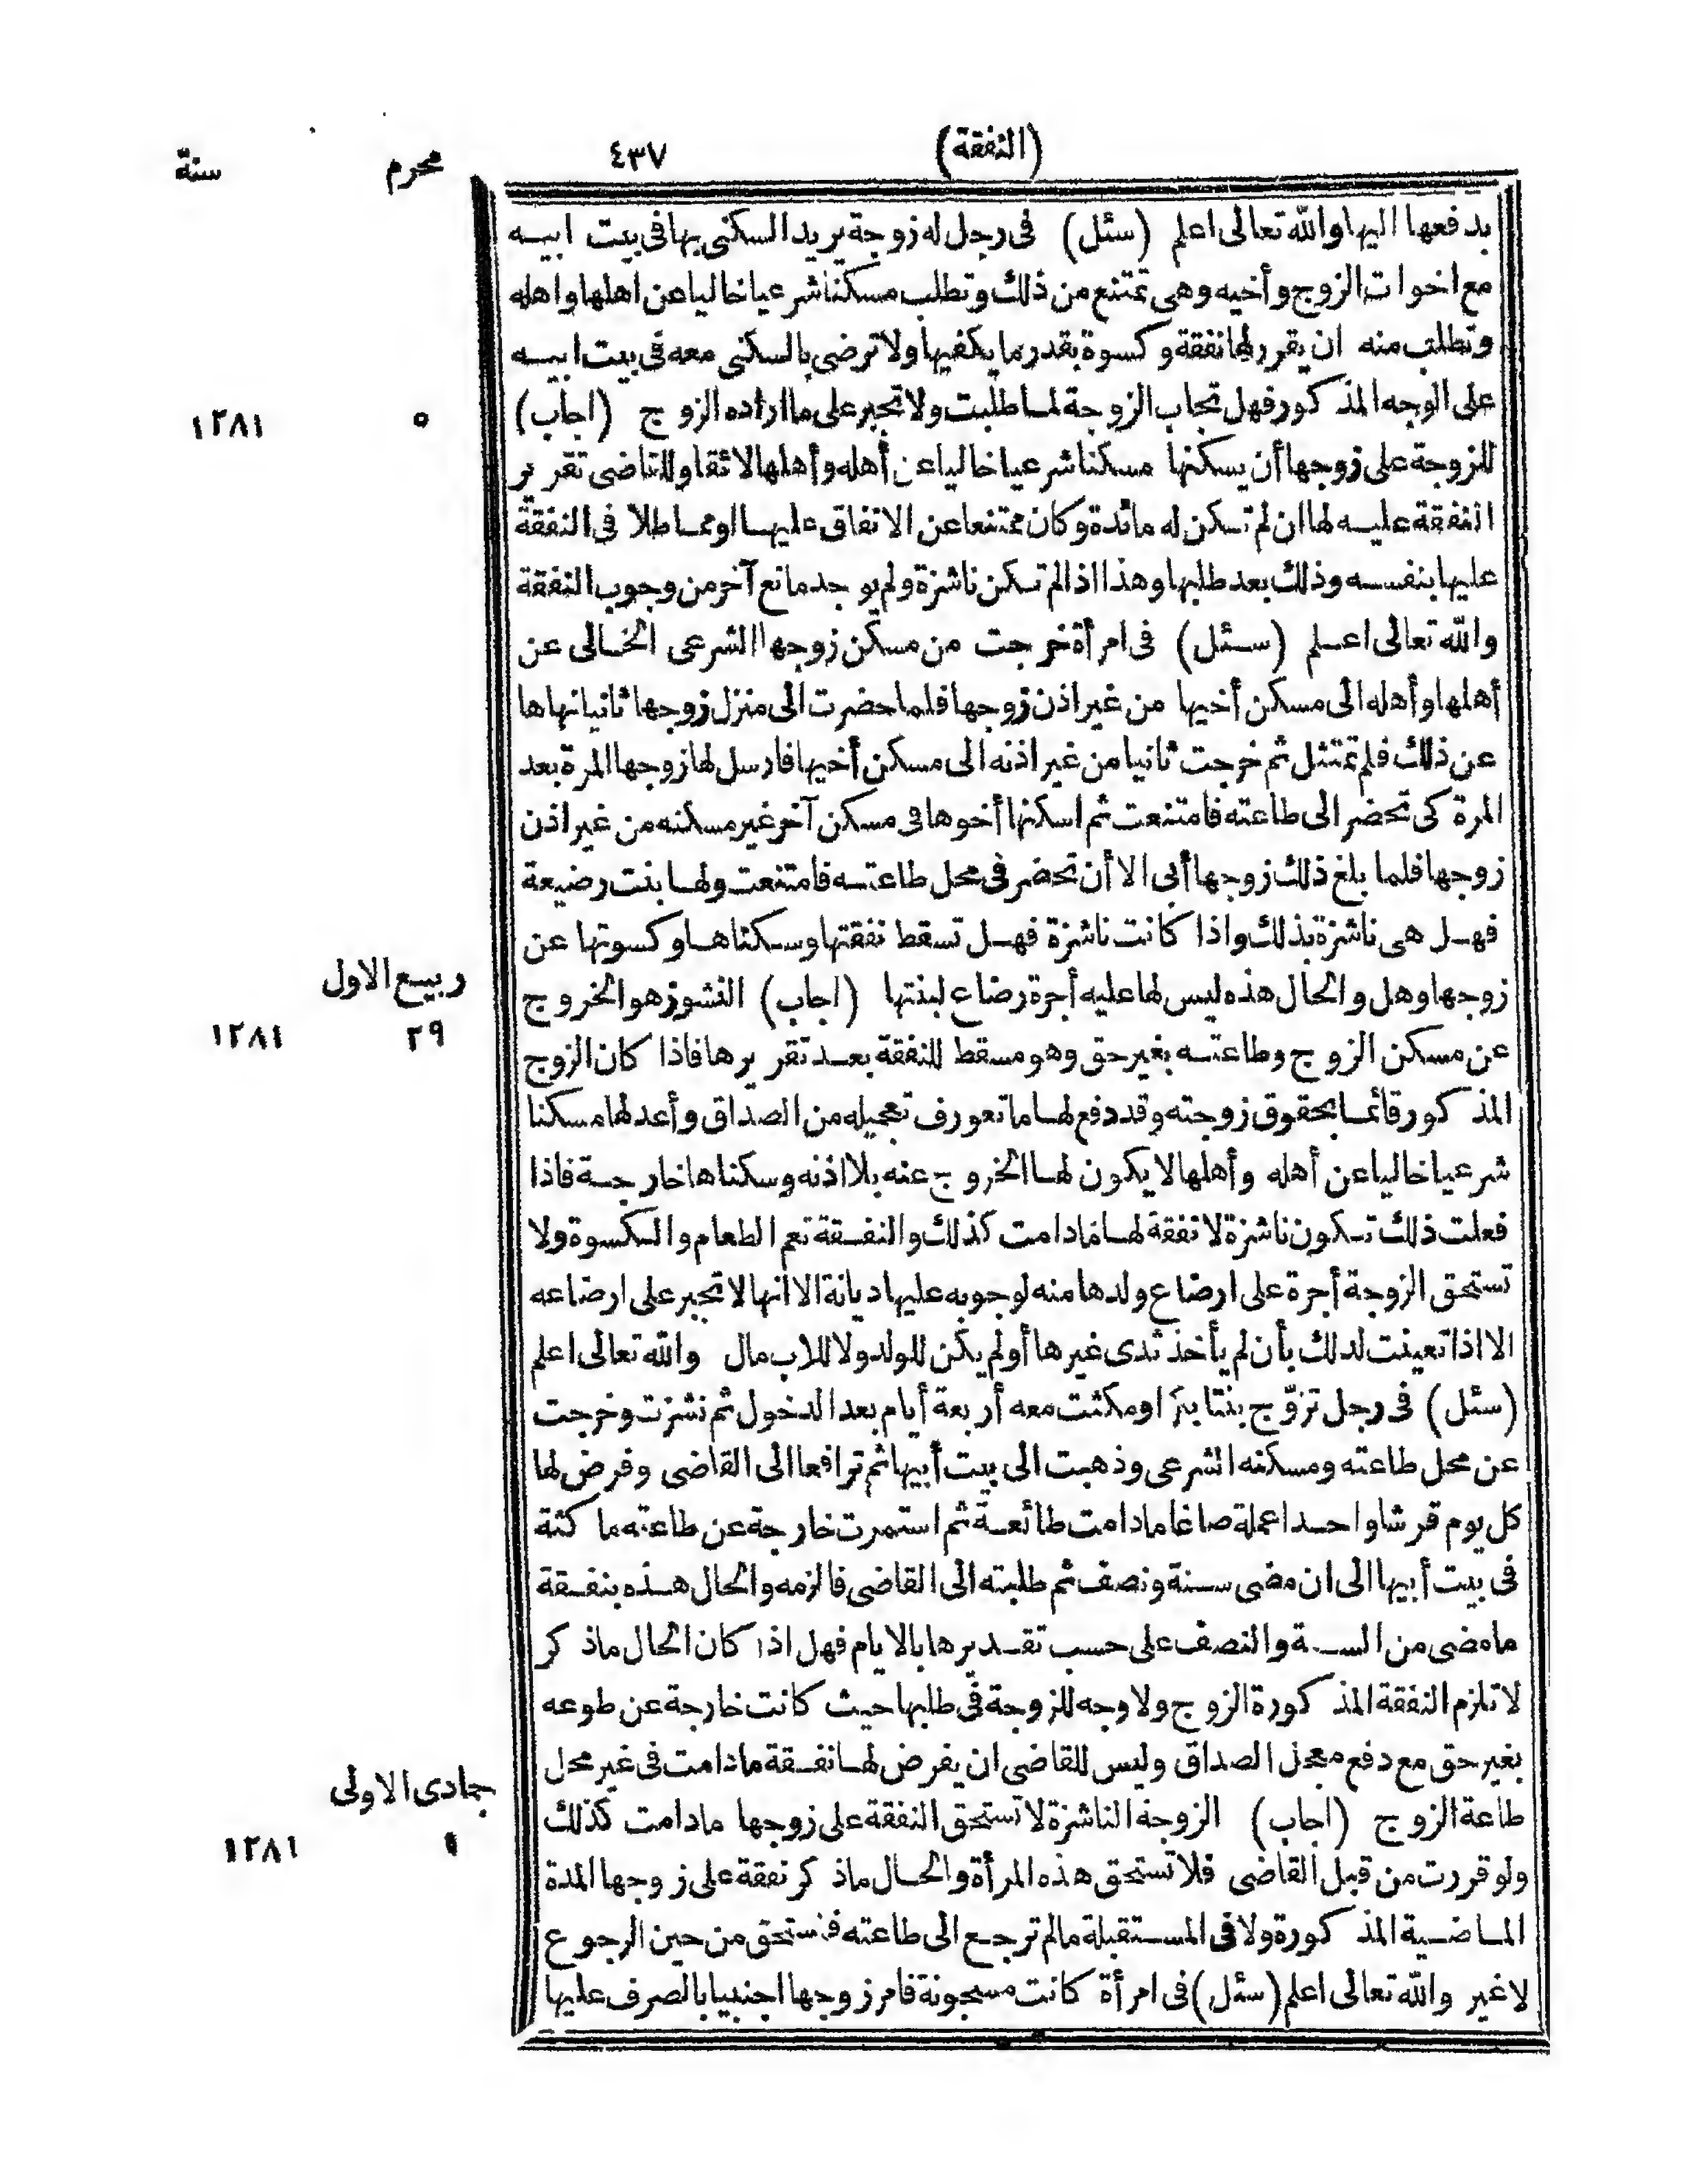 (النفقة) ٤٣٧ محرم سنة
بدفعها اليها والله تعالى اعلم (سئل) فى رجل له زوجة يريد السكنى بها فى بيت ابيه
مع اخوات الزوج وأخيه وهى تمتنع من ذلك وتطلب مسكنا شرعيا خاليا عن اهلها واهله
وتطلب منه ان يقرر لها نفقة وكسوة بقدر ما يكفيها ولا ترضى بالسكنى معه فى بيت ابيه
على الوجه المذكور فهل تجاب الزوجة لما طلبت ولا تجبر على ما اراده الزوج (اجاب)
٥ ١٢٨١
للزوجة على زوجها أن يسكنها مسكنا شرعيا خاليا عن أهله وأهلها لائقا وللقاضى تقرير
النفقة عليه لها ان لم تكن له مائدة وكان ممتنعا عن الانفاق عليها او مماطلا فى النفقة
عليها بنفسه وذلك بعد طلبها وهذا اذا لم تكن ناشزة ولم يوجد مانع آخر من وجوب النفقة
والله تعالى اعلم (سئل) فى امرأة خرجت من مسكن زوجها الشرعى الخالى عن
أهلها وأهله الى مسكن أخيها من غير اذن زوجها فلما حضرت الى منزل زوجها ثانيا نهاها
عن ذلك فلم تمتثل ثم خرجت ثانيا من غير اذنه الى مسكن أخيها فارسل لها زوجها المرة بعد
المرة كى تحضر الى طاعته فامتنعت ثم اسكنها أخوها فى مسكن آخر غير مسكنه من غير اذن
زوجها فلما بلغ ذلك زوجها أبى الا أن تحضر فى محل طاعته فامتنعت ولها بنت رضيعة
فهل هى ناشزة بذلك واذا كانت ناشزة فهل تسقط نفقتها وسكناها وكسوتها عن
زوجها وهل والحال هذه ليس لها عليه أجرة رضاع لبنتها (اجاب) النشوز هو الخروج
ربيع الاول
٢٩ ١٢٨١
عن مسكن الزوج وطاعته بغير حق وهو مسقط للنفقة بعد تقريرها فاذا كان الزوج
المذكور قائما بحقوق زوجته وقد دفع لها ما تعورف تعجيله من الصداق وأعد لها مسكنا
شرعيا خاليا عن أهله وأهلها لا يكون لها الخروج عنه بلا اذنه وسكناها خارجة فاذا
فعلت ذلك تكون ناشزة لا نفقة لها مادامت كذلك والنفقة تعم الطعام والكسوة ولا
تستحق الزوجة أجرة على ارضاع ولدها منه لوجوبه عليها ديانة الا انها لا تجبر على ارضاعه
الا اذا تعينت لذلك بأن لم يأخذ ثدى غيرها أو لم يكن للولد ولا للاب مال والله تعالى اعلم
(سئل) فى رجل تزوّج بنتا بكرا ومكثت معه أربعة أيام بعد الدخول ثم نشزت وخرجت
عن محل طاعته ومسكنه الشرعى وذهبت الى بيت أبيها ثم ترافعا الى القاضى وفرض لها
كل يوم قرشا واحدا عملة صاغا مادامت طائعة ثم استمرت خارجة عن طاعته ماكثة
فى بيت أبيها الى ان مضى سنة ونصف ثم طلبته الى القاضى فالزمه والحال هذه بنفقة
ما مضى من السنة والنصف على حسب تقديرها بالايام فهل اذا كان الحال ما ذكر
لا تلزم النفقة المذكورة الزوج ولا وجه للزوجة فى طلبها حيث كانت خارجة عن طوعه
بغير حق مع دفع معجل الصداق وليس للقاضى ان يفرض لها نفقة مادامت فى غير محل
جمادى الاولى
طاعة الزوج (اجاب) الزوجة الناشزة لا تستحق النفقة على زوجها مادامت كذلك
١ ١٢٨١
ولو قررت من قبل القاضى فلا تستحق هذه المرأة والحال ما ذكر نفقة على زوجها المدة
الماضية المذكورة ولا فى المستقبلة مالم ترجع الى طاعته فتستحق من حين الرجوع
لا غير والله تعالى اعلم (سئل) فى امرأة كانت مسجونة فامر زوجها اجنبيا بالصرف عليها